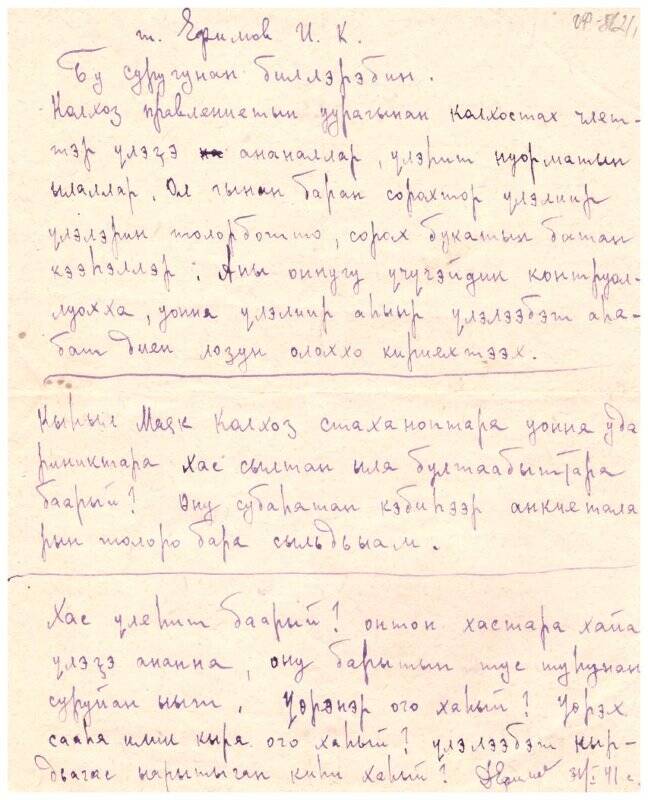 т. Ефимов И. К.
Бу суругунан биллэрэбин.
Калхоз правлениетын уурагынан калхостах члет-
тэр үлэҕэ ананаллар, үлэһит нуорматын
ылаллар. Ол гынан баран сорахтор үлэлиир
үлэлэрин толорботто, сорох букатын батан
кээһэллэр. Аны оннугу үчүгэйдик контруол-
луохха, уонна үлэлиир аһыыр үлэлээбэт аһа-
бат диен лозун олоххо кириехтээх.
Кыһыл Маяк Калхоз стаханоптара уонна уда
риниктара хас сылтан ыла булгаабыттара
баарый? Ону субаратан кэбиһээр анкиетала
рын толоро бара сылдьыам.
Хас үлеһит баарый? онтон хастара хайа
үлэҕэ ананна, ону барытын тус туһунан
суруйан ыыт. Үөрэнэр ого хаһый? Үөрэх
сааһа илик кыра ого хаһый? үлэлээбэт кыр-
дьагас ыарытыган киһи хаһый? 31/I 41 с.